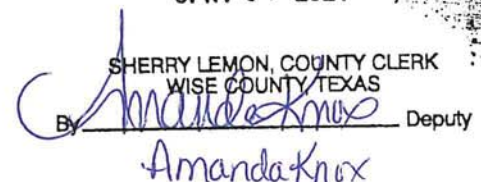 SHERRY LEMON, COUNTY CLERK
WISE COUNTY, TEXAS
By Amanda Knox Deputy
Amanda Knox